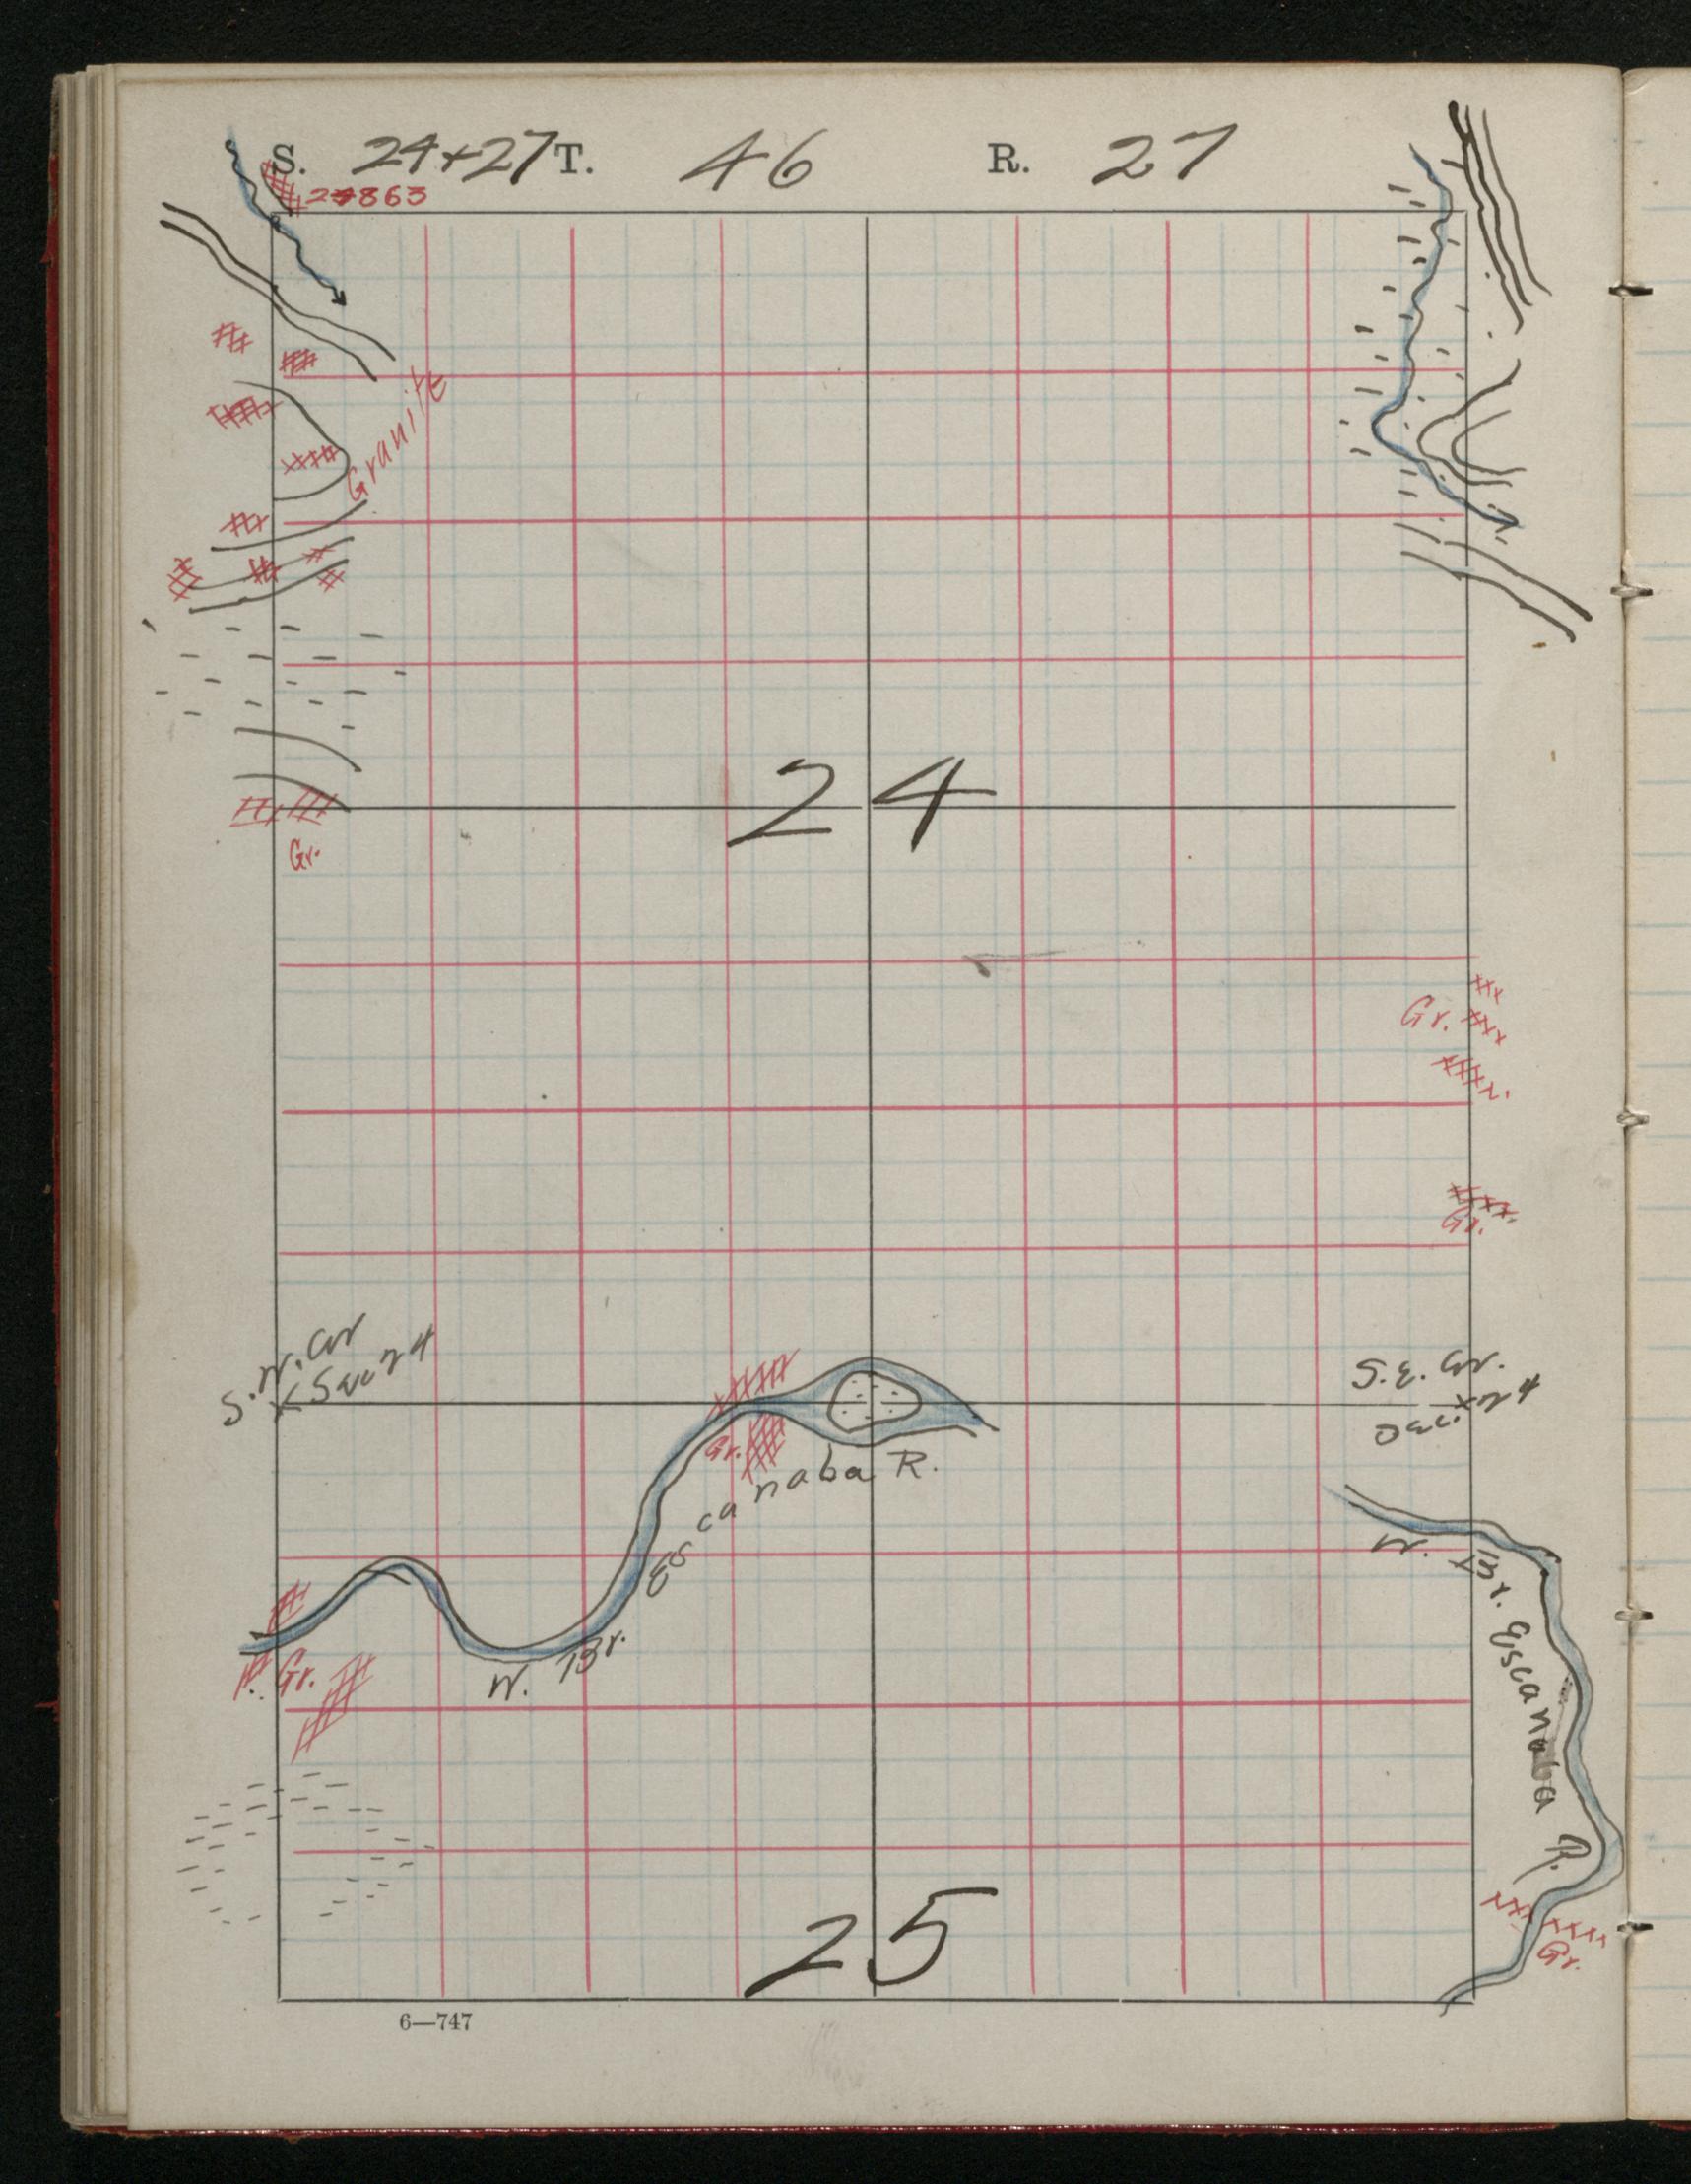 S. 24+27 T. 46 R. 27
Granite
24
Gr.
Gr.
Gr.
S.W. Cor
Sec 24
S.E. Cor.
Sec. 24
Gr.
W. Br. Escanaba R.
W. Br. Escanaba R.
Gr.
Gr.
25
6—747